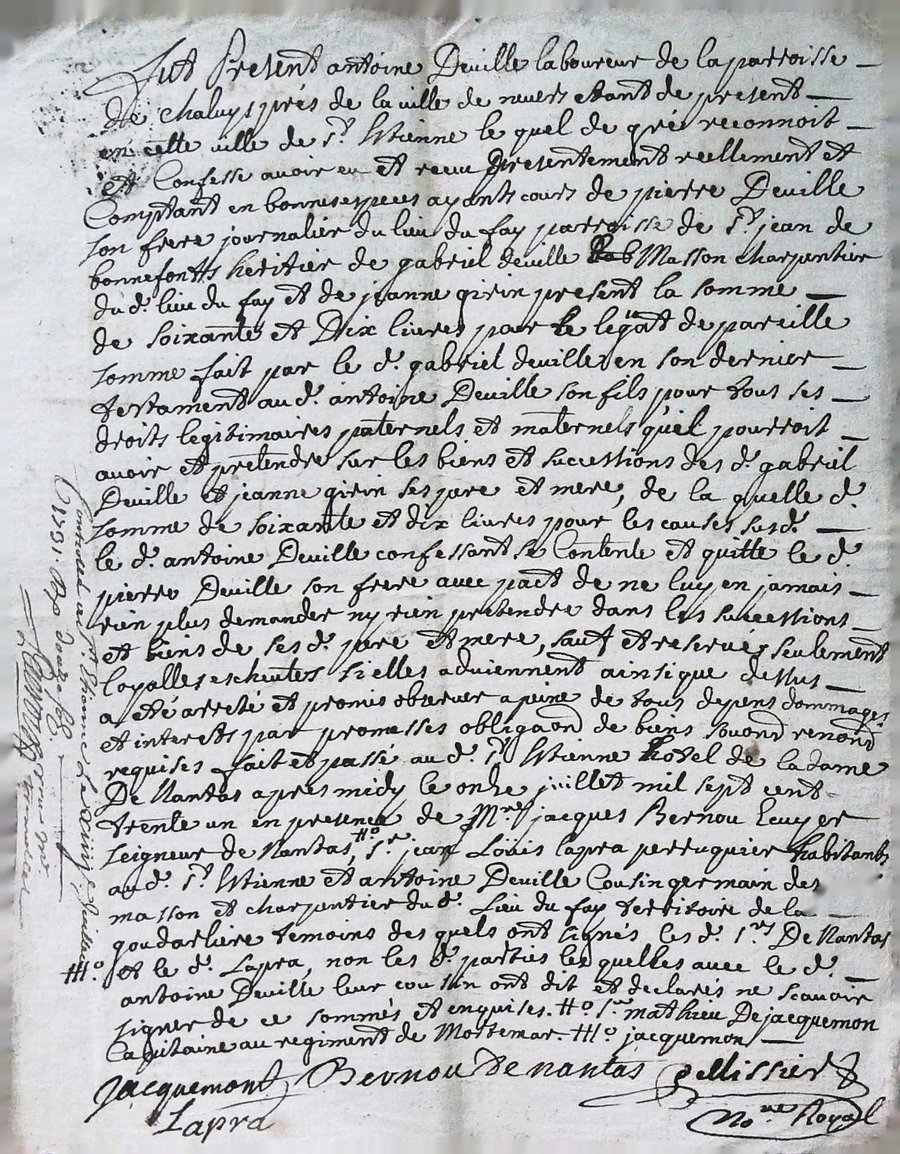 Fut Present antoine Deville laboureur de la parroisse
de chaluys prés de la ville de nevers etant de present
en cette ville de st Etienne le quel de gré reconnoit
et Confesse avoir eu et receu presentement reellement et
Comptant en bonnes especes ayants cours de pierre Deville
son frere journalier du lieu du fay parroisse de st jean de
bonnefonts heritier de gabriel deville Masson charpentier
du d. lieu du fay et de jeanne girin present la somme
de soixante et Dix livres par le legat de pareille
somme fait par le d. gabriel deville en son dernier
testament au d. antoine Deville son fils pour tous ses
droits legitimaires paternels et maternels qu'il pourroit
avoir et pretendre sur les biens et successions des d. gabriel
Deville et jeanne girin ses pere et mere, de la quelle d.
somme de soixante et dix livres pour les causes susd.
le d. antoine Deville confessant se Contente et quitte le d.
pierre Deville son frere avec pact de ne luy en jamais
rien plus demander ny rien pretendre dans les successions
et biens de ses d. pere et mere, sauf et reservés seulement
loyalles eschutes si elles adviennent ainsi que dessus
a eté arreté et promis observer a peine de tous depens dommages
et interests par promesses obligaond de biens souond renond
requises fait et passé au d. st Etienne hotel de la dame
De Nantas apres midy le onze juillet mil sept cent
trente un en presence de Mre jacques Bernou Ecuyer
seigneur de Nantas, #o sr jean Louis Lapra perruquier habitants
au d. st Etienne et antoine Deville Cousin germain des
masson et charpentier du d. Lieu du fay territoire de la
goudarliere temoins des quels ont signés les d. srs De Nantas
##o et le d. Lapra, non les d. parties les quelles avec le d.
antoine Deville leur cousin ont dit et declarés ne scavoir
signer de ce sommés et enquises. #o sr mathieu De jacquemon
Capitaine au regiment de Mortemar. ##o jacquemon
Jacquemont Bernou de nantas Pellissier
Lapra No.re Royal
Controllé a st Etienne le juillet
1731. Rx douze s.